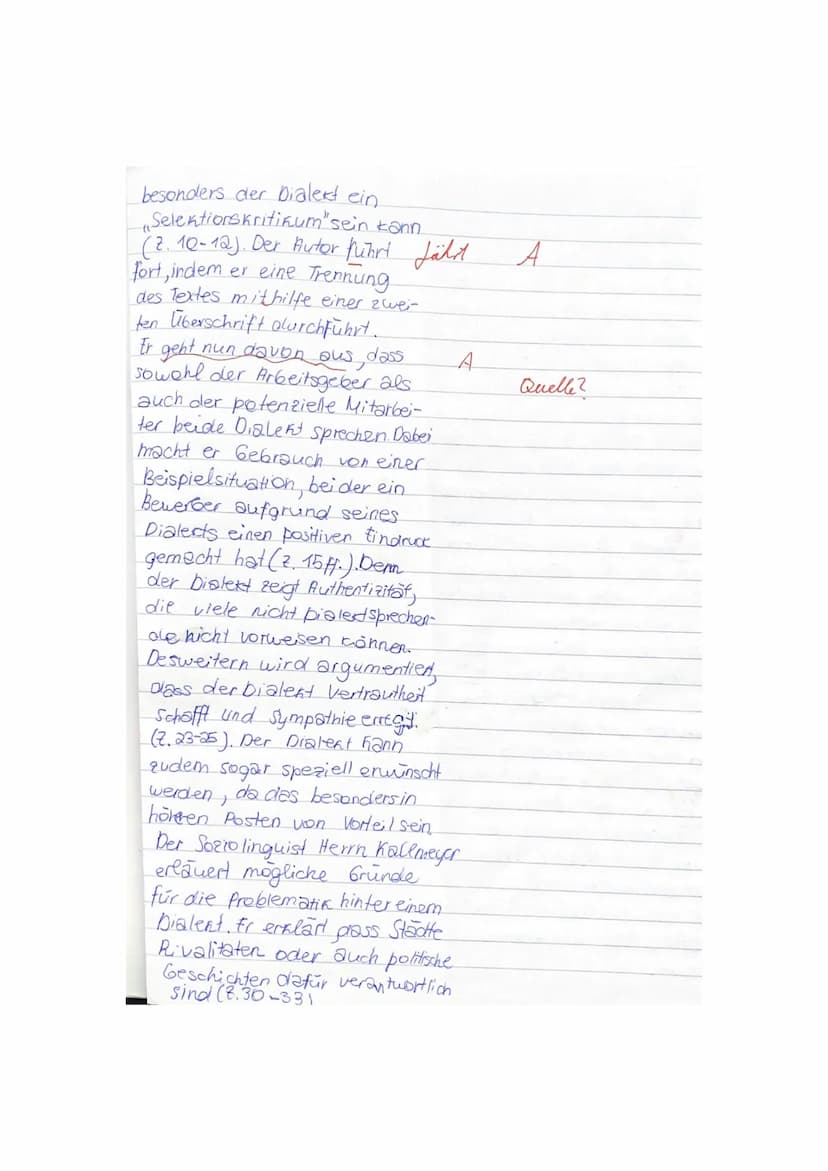 besonders der Dialekt ein
„Selektionskritikum" sein kann
(Z. 10-12). Der Autor führt fährt A
fort, indem er eine Trennung
des Textes mithilfe einer zwei-
ten Überschrift durchführt.
Er geht nun davon aus, dass A
sowohl der Arbeitsgeber als Quelle?
auch der potenzielle Mitarbei-
ter beide Dialekt sprechen. Dabei
macht er Gebrauch von einer
Beispielsituation, bei der ein
Bewerber aufgrund seines
Dialects einen positiven Eindruck
gemacht hat (Z. 15ff.). Denn
der Dialekt zeigt Authentizität,
die viele nicht Dialektsprechen-
de nicht vorweisen können.
Desweitern wird argumentiert,
dass der Dialekt Vertrautheit
schafft und Sympathie erregt.
(Z. 23-25). Der Dialekt kann
zudem sogar speziell erwünscht
werden, da das besonders in
höheren Posten von Vorteil sein
Der Soziolinguist Herrn Kallmeyer
erläuert mögliche Gründe
für die Problematik hinter einem
Dialekt. Er erklärt dass Städte
Rivalitäten oder auch politische
Geschichten dafür verantwortlich
sind (Z. 30-33)